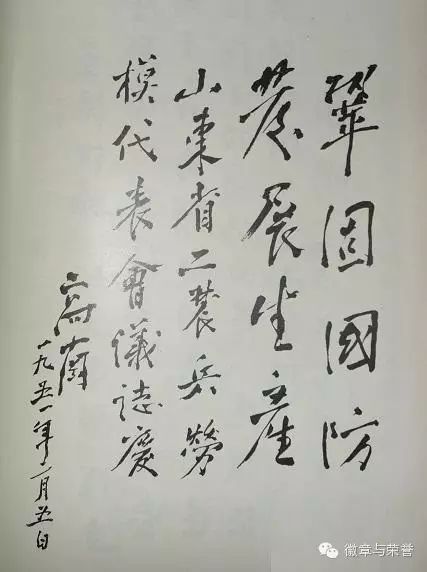 鞏固國防
發展生產
山東省工農兵勞
模代表會議誌慶
一九五一年二月五日
徽章与荣誉